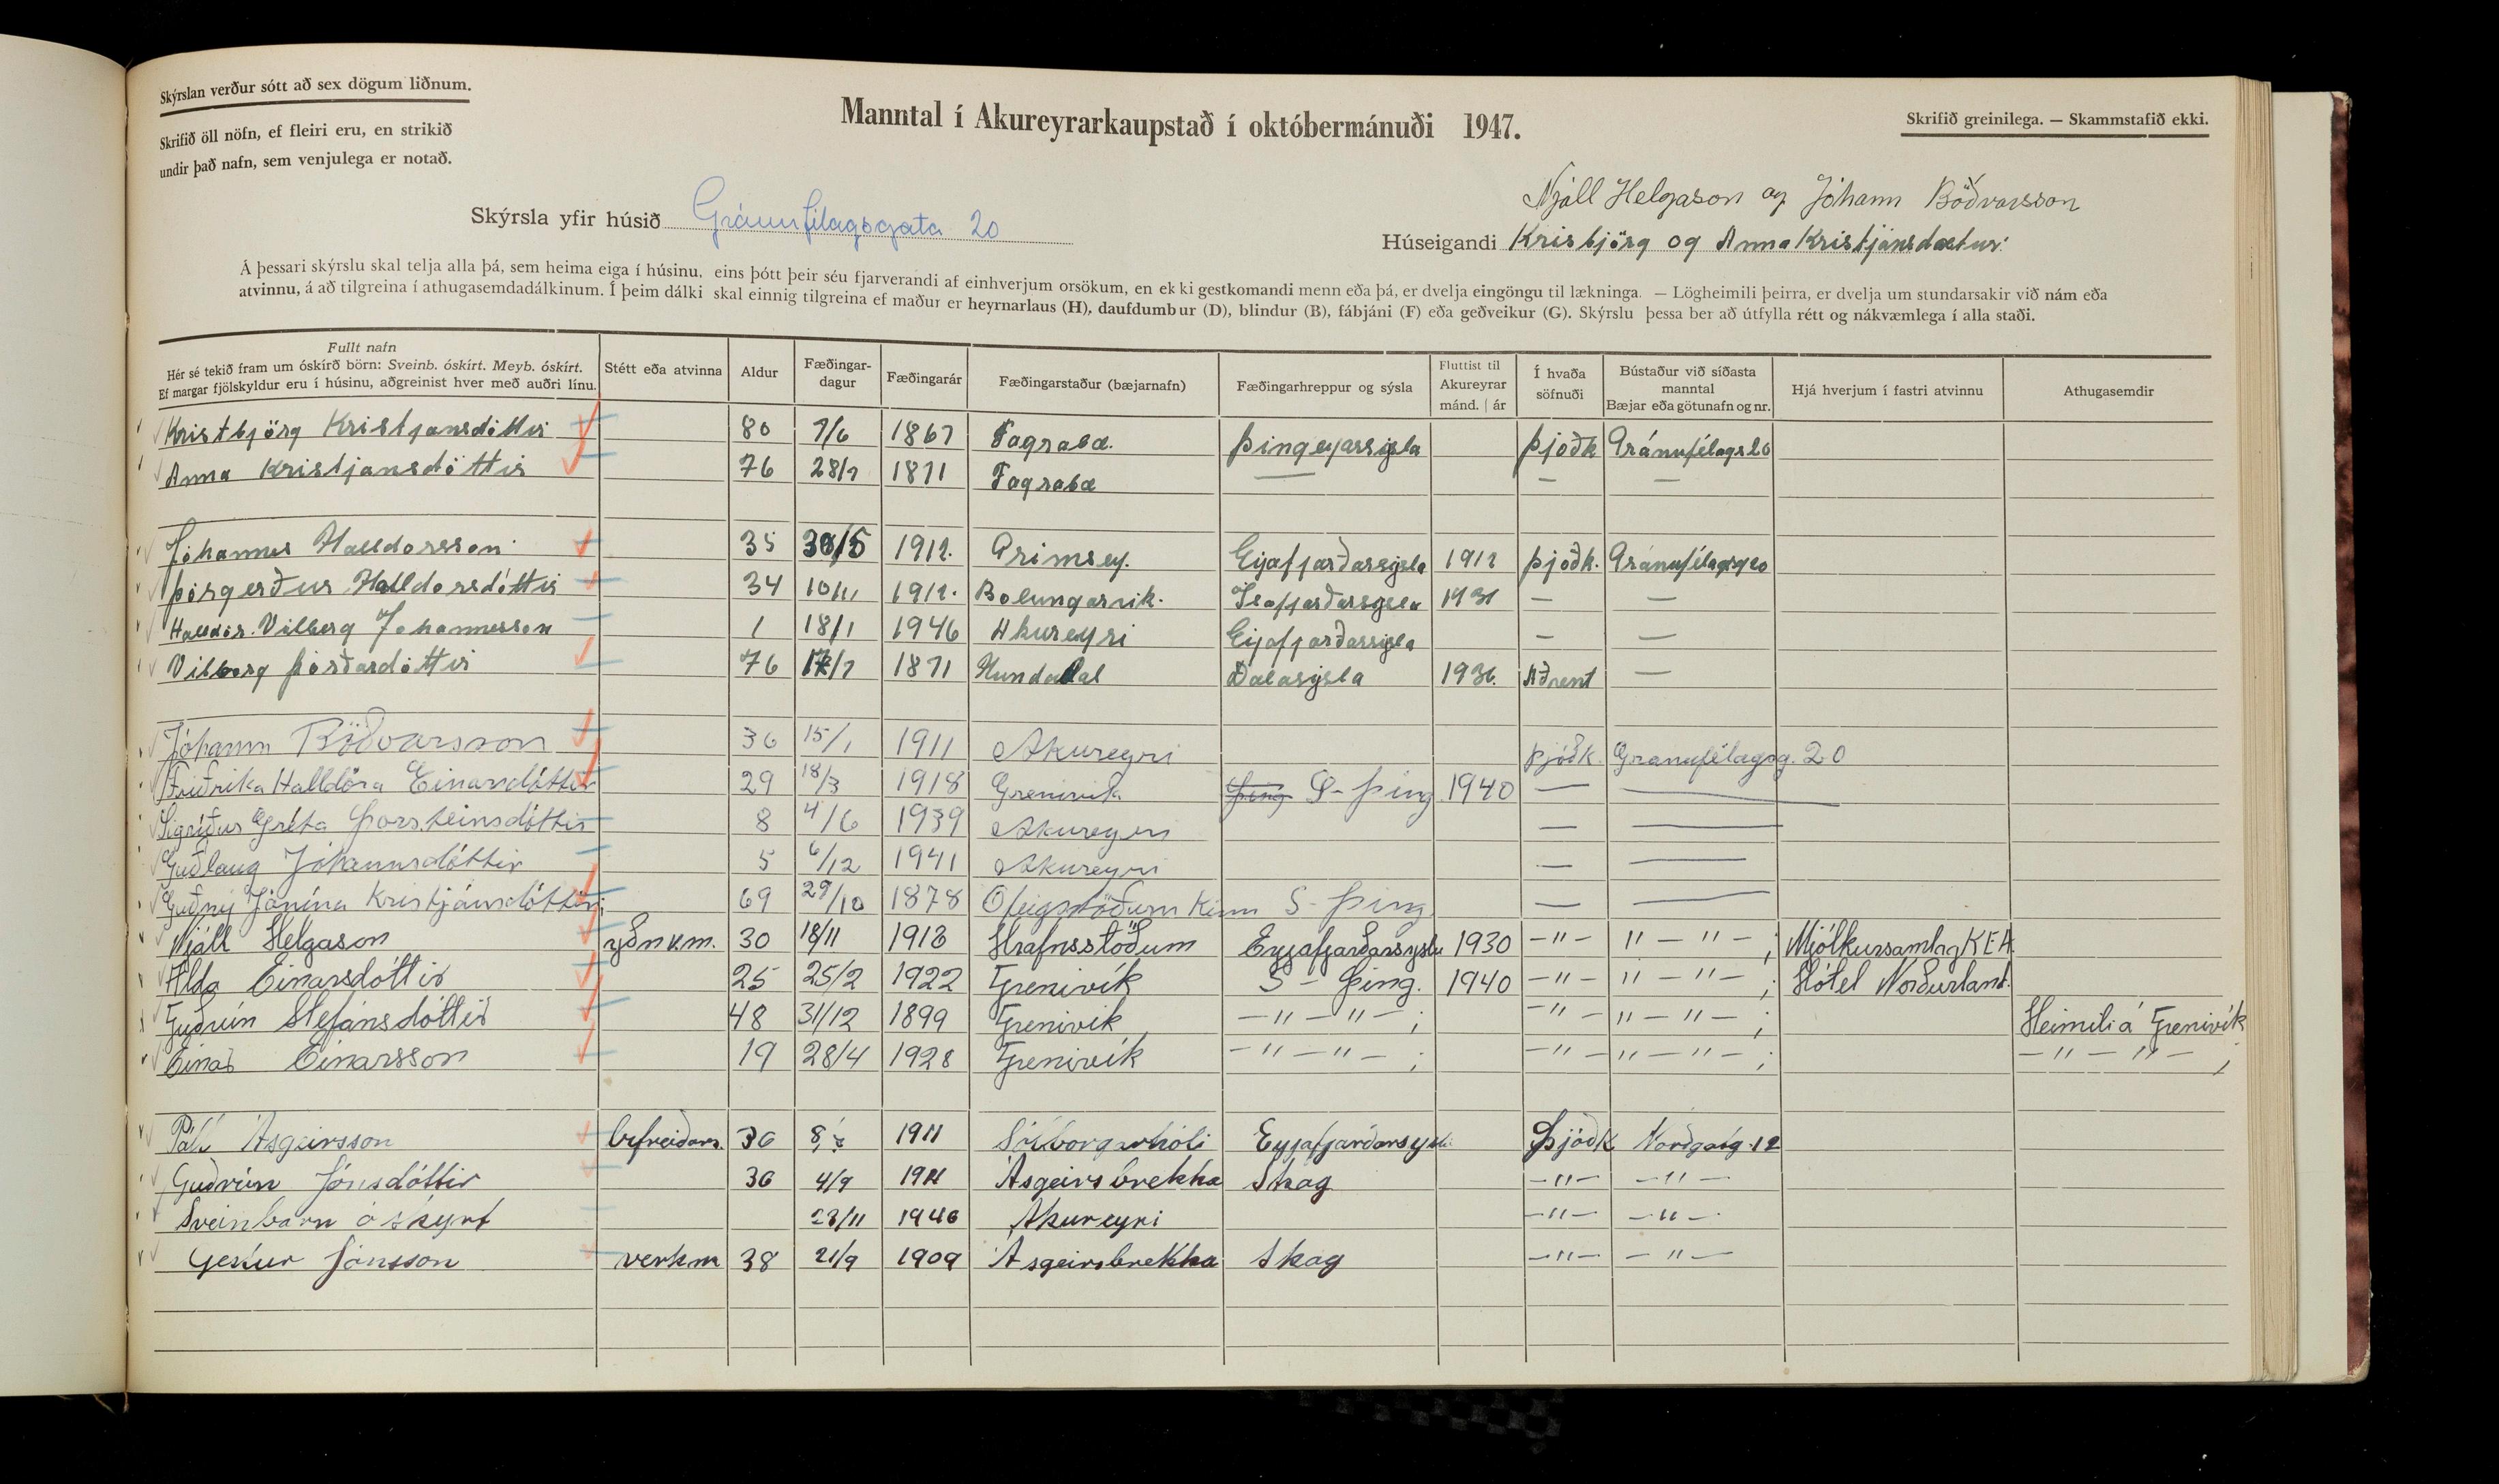 Skýrslan verður sótt að sex dögum liðnum.
Skrifið öll nöfn, ef fleiri eru, en strikið
undir það nafn, sem venjulega er notað.
Manntal í Akureyrarkaupstað í októbermánuði 1947.
Skrifið greinilega. — Skammstafið ekki.
Skýrsla yfir húsið Gránufélagsgata 20
Njáll Helgason og Jóhann Böðvarsson
Húseigandi Kristbjörg og Anna Kristjánsdætur.
Á þessari skýrslu skal telja alla þá, sem heima eiga í húsinu, eins þótt þeir séu fjarverandi af einhverjum orsökum, en ekki gestkomandi menn eða þá, er dvelja eingöngu til lækninga. — Lögheimili þeirra, er dvelja um stundarsakir við nám eða
atvinnu, á að tilgreina í athugasemdadálkinum. Í þeim dálki skal einnig tilgreina ef maður er heyrnarlaus (H), daufdumbur (D), blindur (B), fábjáni (F) eða geðveikur (G). Skýrslu þessa ber að útfylla rétt og nákvæmlega í alla staði.
Fullt nafn
Hér sé tekið fram um óskírð börn: Sveinb. óskírt. Meyb. óskírt.
Ef margar fjölskyldur eru í húsinu, aðgreinist hver með auðri línu.
Stétt eða atvinna
Aldur
Fæðingar-
dagur
Fæðingarár
Fæðingarstaður (bæjarnafn)
Fæðingarhreppur og sýsla
Fluttist til
Akureyrar
mánd. | ár
Í hvaða
söfnuði
Bústaður við síðasta
manntal
Bæjar eða götunafn og nr.
Hjá hverjum í fastri atvinnu
Athugasemdir
Kristbjörg Kristjansdóttir 80 7/6 1867 Fagrabæ. Þingeyarsýsla Þjoðk Gránufélags 20
Anna Kristjansdóttir 76 28/7 1871 Fagrabæ — — —
Jóhannes Halldorsson 35 30/5 1912. Grimsey. Eyjafjarðarsýsla 1912 þjoðk. Gránufélagsg 20
Þorgerður Halldorsdóttir 34 10/11 1912. Bolungarvik. Isafjarðarsysla 1931 — —
Halldór. Vilberg Johannesson 1 18/1 1946 Akureyri Eyjafjarðarsysla — —
Vilborg Þórðardóttir 76 17/7 1871 Hundadal Dalasýsla 1936. Aðvent —
Jóhann Böðvarsson 36 15/1 1911 Akureyri Þjóðk. Granufélagsg. 20
Friðrika Halldóra Einarsdóttir 29 18/3 1918 Grenivík Þing S-Þing 1940 — —
Sigríður Gréta Þorsteinsdóttir 8 4/6 1939 Akureyri — —
Guðlaug Jóhannsdóttir 5 6/12 1941 Akureyri — —
Guðný Jónína Kristjánsdóttir; 69 29/10 1878 Ófeigsstöðum Kinn S-Þing — —
Njáll Helgason yðnkm. 30 18/11 1913 Hrafnsstöðum Eyjafjarðarsýslu 1930 -"- " — " — ; Mjólkursamlag KEA
Alda Einarsdóttir 25 25/2 1922 Grenivík S - Þing. 1940 -"- " — " — ; Hótel Norðurland.
Guðrún Stefánsdóttir 48 31/12 1899 Grenivík — " — " — ; -"- " — " — ; Heimili á Grenivík
Einar Einarsson 19 28/4 1928 Grenivík — " — " — ; -"- " — " — ; — " — " — ;
Páll Ásgeirsson bifreiðars. 36 1911 Sólborgarhóli Eyjafjarðarsýslu Þjóðk Norðgötg. 12
Guðrún Jónsdóttir 36 4/9 1911 Ásgeirsbrekka Skag -"- -"-
Sveinbarn óskýrt 23/11 1946 Akureyri -"- -"-
Gestur Jónsson verkm 38 21/9 1909 Ásgeirsbrekka Skag -"- -"-